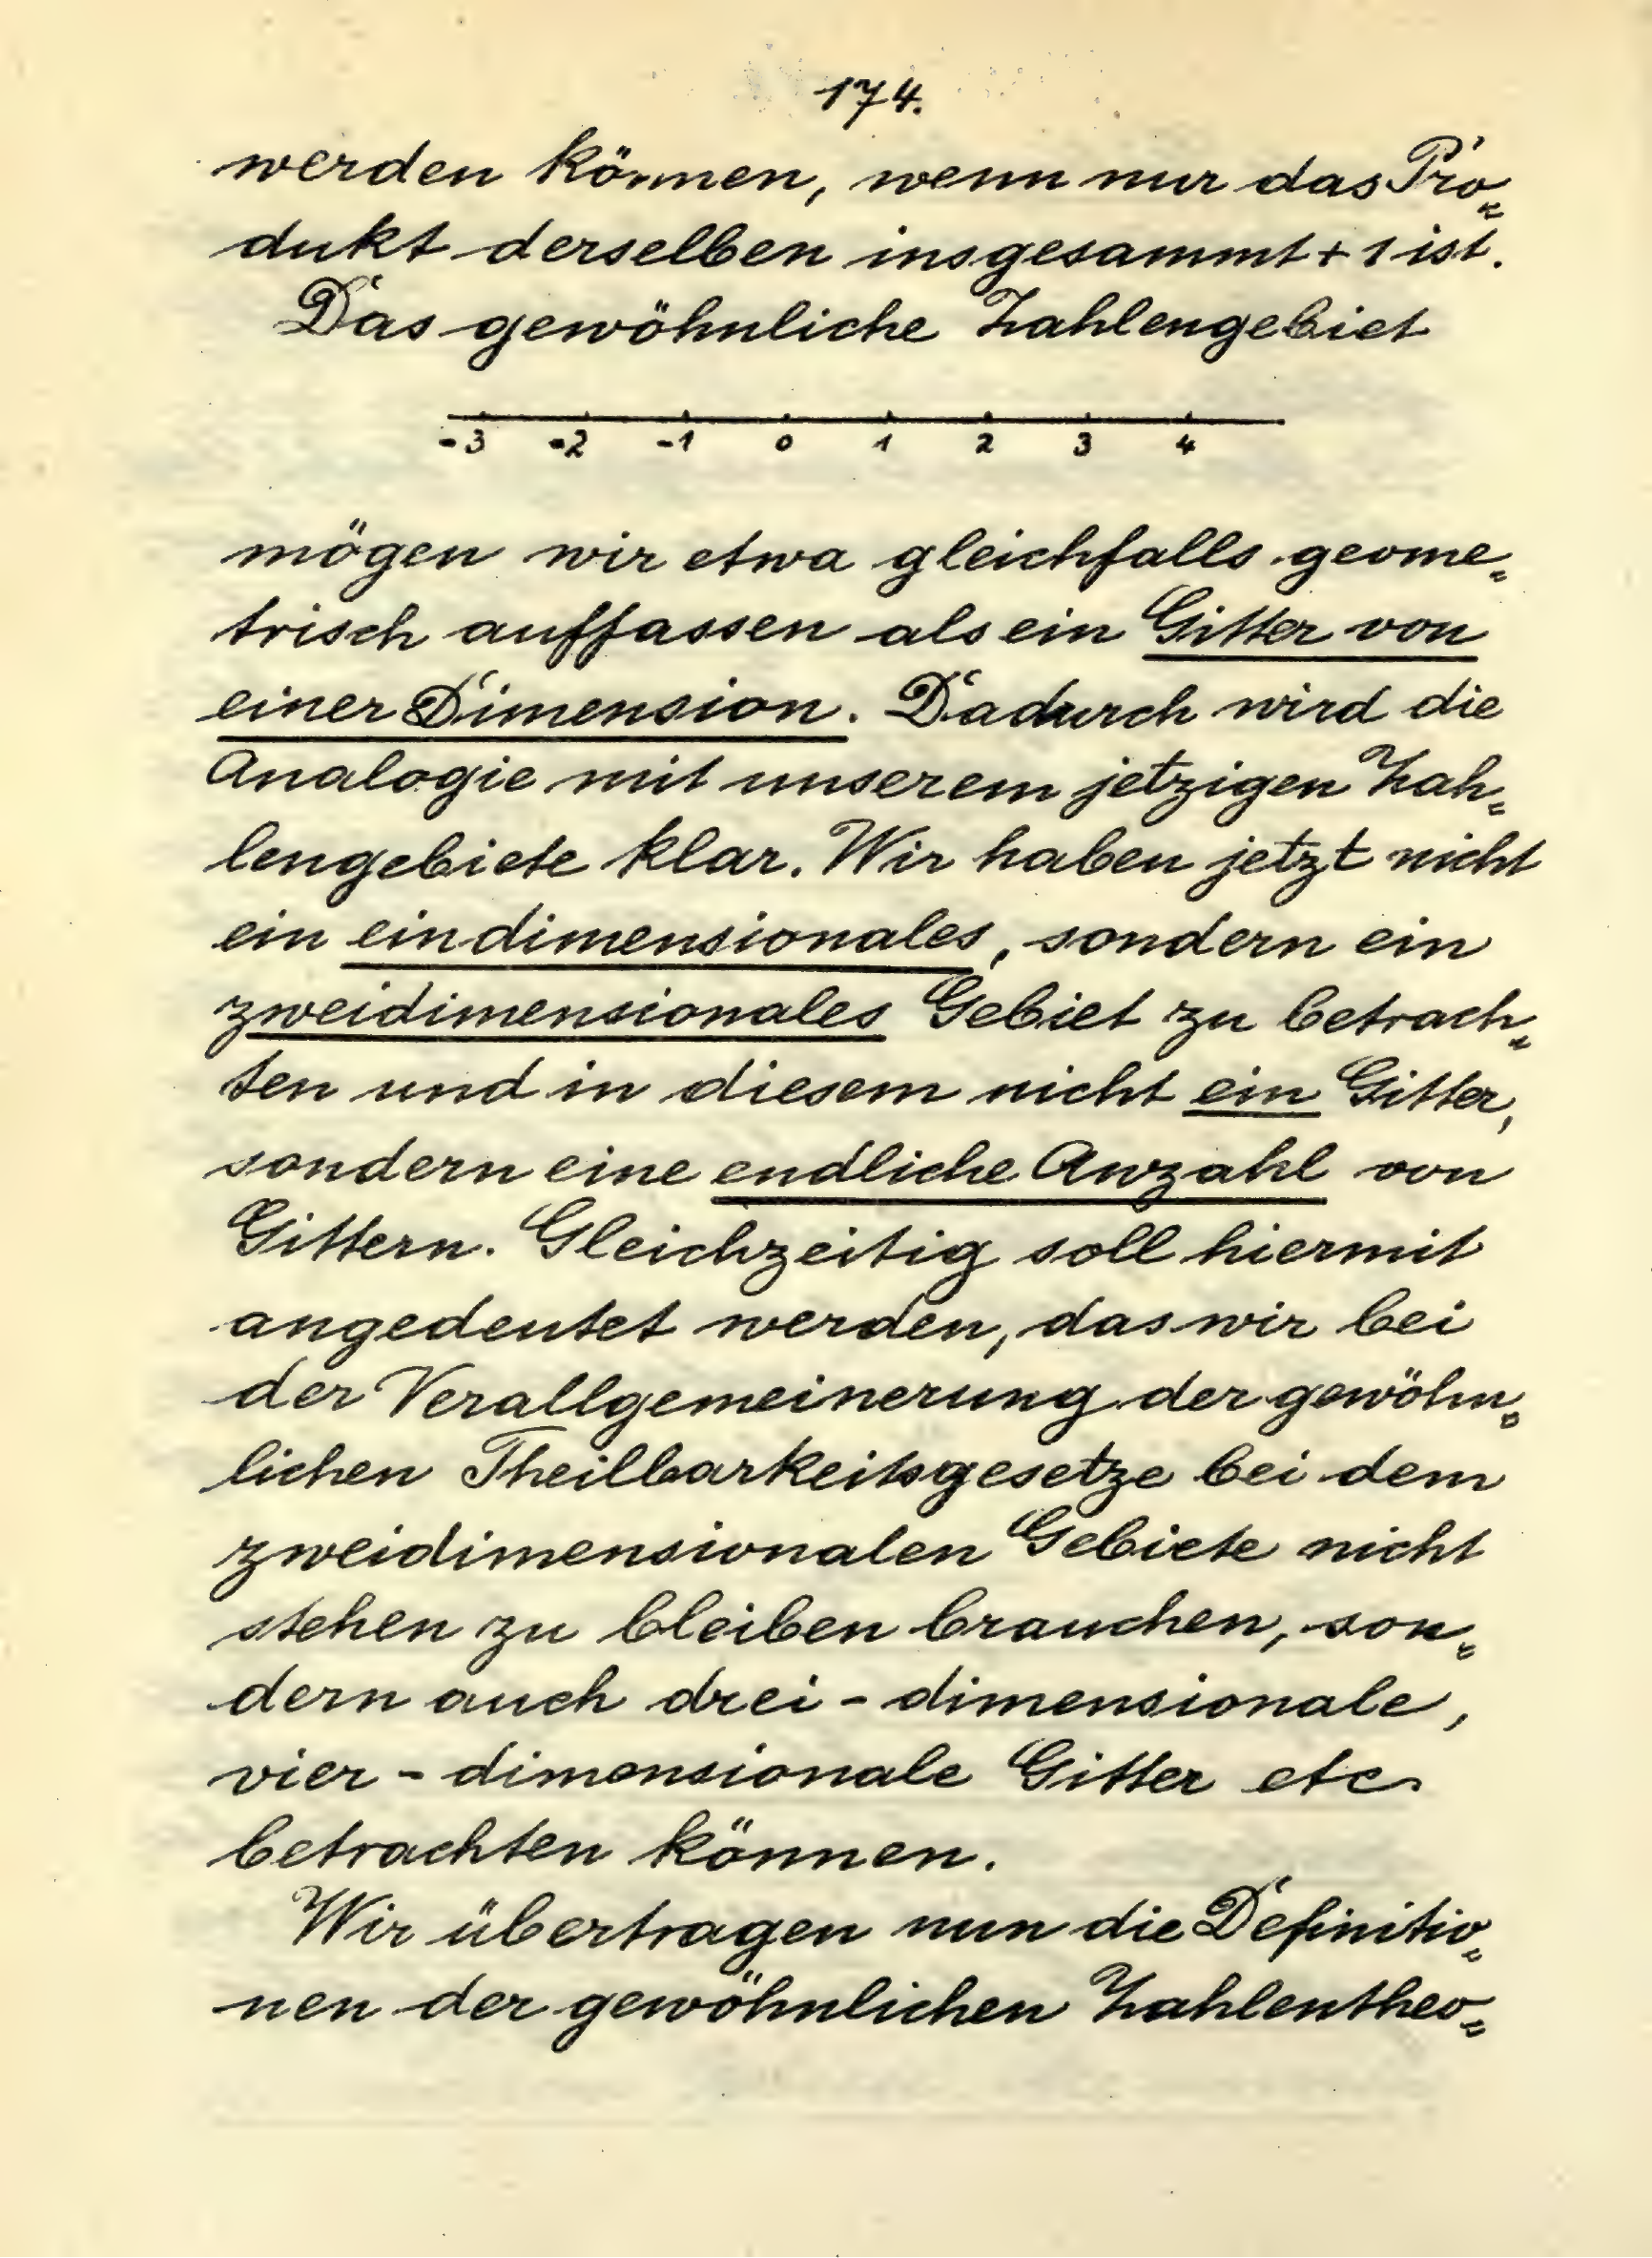 174.
werden können, wenn nur das Pro=
dukt derselben insgesammt + 1 ist.
Das gewöhnliche Zahlengebiet
-3 -2 -1 0 1 2 3 4
mögen wir etwa gleichfalls geome=
trisch auffassen als ein Gitter von
einer Dimension. Dadurch wird die
Analogie mit unserem jetzigen Zah=
lengebiete klar. Wir haben jetzt nicht
ein eindimensionales, sondern ein
zweidimensionales Gebiet zu betrach=
ten und in diesem nicht ein Gitter,
sondern eine endliche Anzahl von
Gittern. Gleichzeitig soll hiermit
angedeutet werden, das wir bei
der Verallgemeinerung der gewöhn=
lichen Theilbarkeitsgesetze bei dem
zweidimensionalen Gebiete nicht
stehen zu bleiben brauchen, son=
dern auch drei - dimensionale,
vier - dimensionale Gitter etc.
betrachten können.
Wir übertragen nun die Definitio=
nen der gewöhnlichen Zahlentheo=